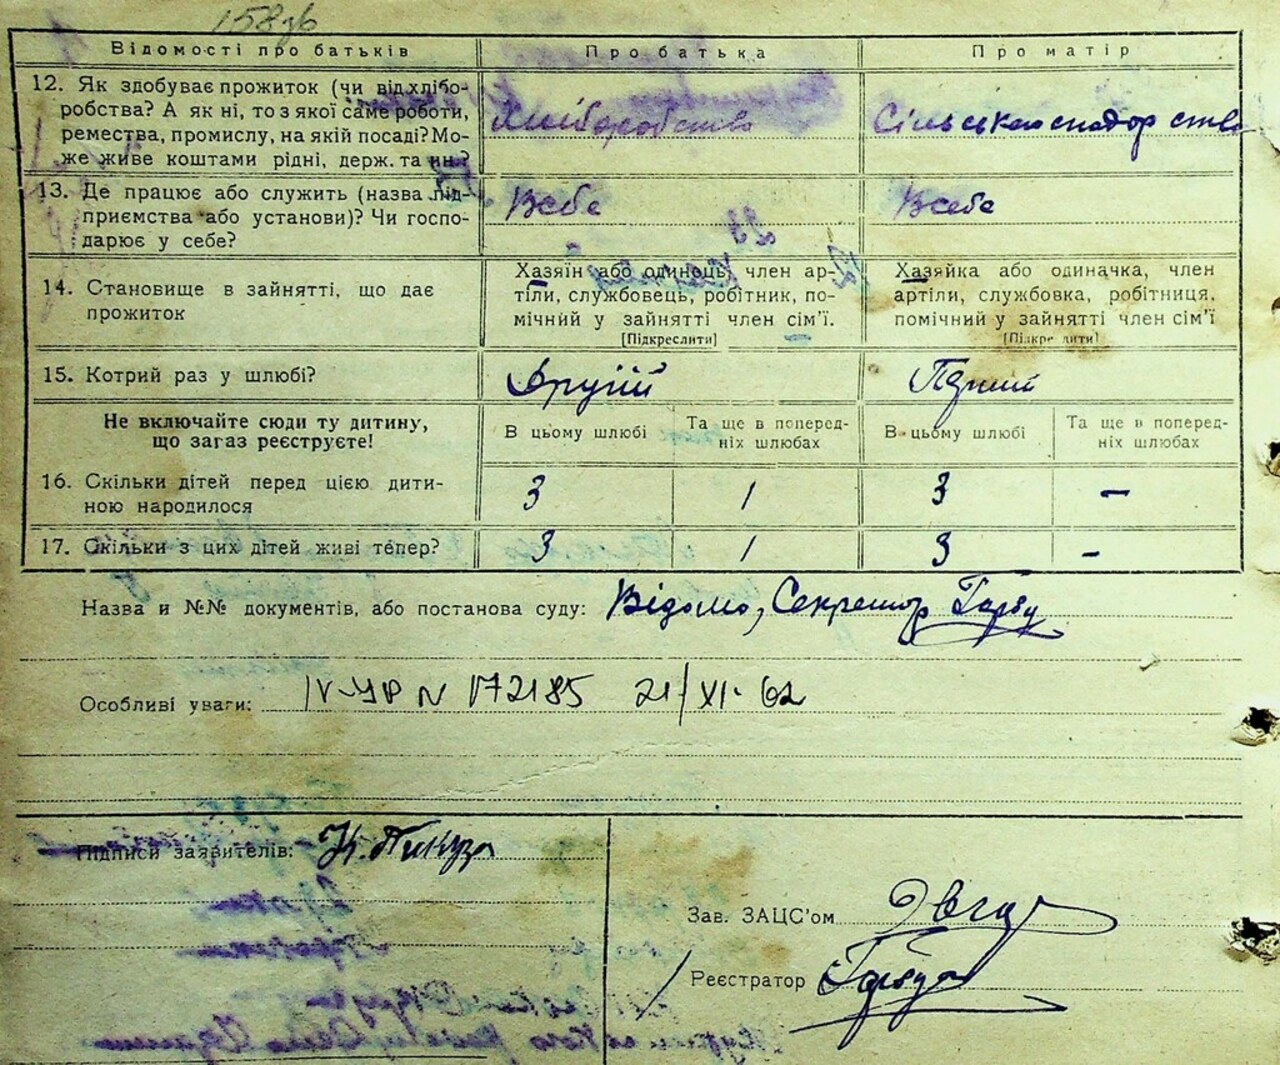 158зв
Відомості про батьків
Про батька
Про матір
12. Як здобуває прожиток (чи від хлібо-
робства? А як ні, то з якої саме роботи,
ремества, промислу, на якій посаді? Мо-
же живе коштами рідні, держ. та ин.?
Хліборобство
Сільське господарство
13. Де працює або служить (назва під-
приємства або установи)? Чи госпо-
дарює у себе?
В себе
В себе
14. Становище в зайнятті, що дає
прожиток
Хазяїн або одинець, член ар-
тіли, службовець, робітник, по-
мічний у зайнятті член сім'ї.
[Підкреслити]
Хазяйка або одиначка, член
артіли, службовка, робітниця,
помічний у зайнятті член сім'ї
[Підкреслити]
15. Котрий раз у шлюбі?
Другий
Перший
Не включайте сюди ту дитину,
що загаз реєструєте!
В цьому шлюбі
Та ще в поперед-
ніх шлюбах
В цьому шлюбі
Та ще в поперед-
ніх шлюбах
16. Скільки дітей перед цією дити-
ною народилося
3
1
3
—
17. Скільки з цих дітей живі тепер?
3
1
3
—
Назва и №№ документів, або постанова суду: Відомо, Секретар
Особливі уваги: IV-УР N 172185 21/XI-62
Підписи заявителів:
Зав. ЗАЦС'ом
Реєстратор